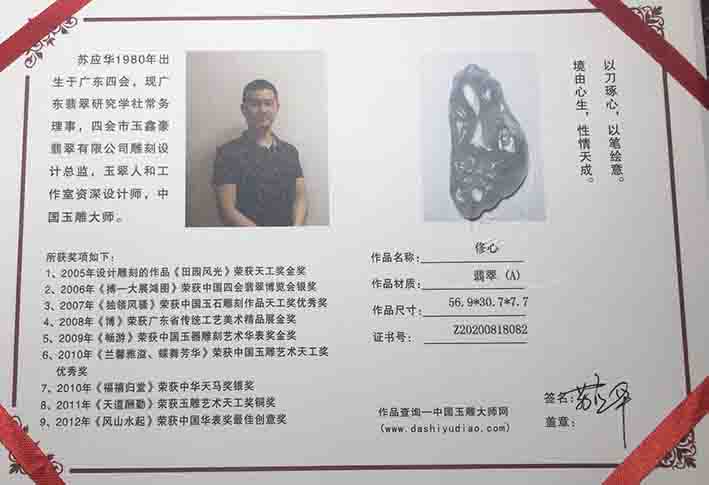 苏应华1980年出
生于广东四会，现广
东翡翠研究学社常务
理事，四会市玉鑫豪
翡翠有限公司雕刻设
计总监，玉翠人和工
作室资深设计师，中
国玉雕大师。
以刀琢心，以笔绘意。
境由心生，性情天成。
作品名称：修心
作品材质：翡翠（A）
作品尺寸：56.9*30.7*7.7
证书号：Z20200818082
所获奖项如下：
1、2005年设计雕刻的作品《田园风光》荣获天工奖金奖
2、2006年《搏一大展鸿图》荣获中国四会翡翠博览会银奖
3、2007年《独领风骚》荣获中国玉石雕刻作品天工奖优秀奖
4、2008年《博》荣获广东省传统工艺美术精品展金奖
5、2009年《畅游》荣获中国玉器雕刻艺术华表奖金奖
6、2010年《兰馨雅溢、蝶舞芳华》荣获中国玉雕艺术天工奖
优秀奖
7、2010年《福禧归堂》荣获中华天马奖银奖
8、2011年《天道酬勤》荣获玉雕艺术天工奖铜奖
9、2012年《风山水起》荣获中国华表奖最佳创意奖
作品查询一中国玉雕大师网
(www.dashiyudiao.com)
签名：苏应华
盖章：